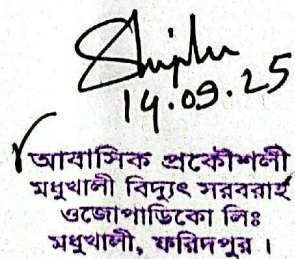 Shiplu
14.09.25
আবাসিক প্রকৌশলী
মধুখালী বিদ্যুৎ সরবরাহ
ওজোপাডিকো লিঃ
মধুখালী, ফরিদপুর ।